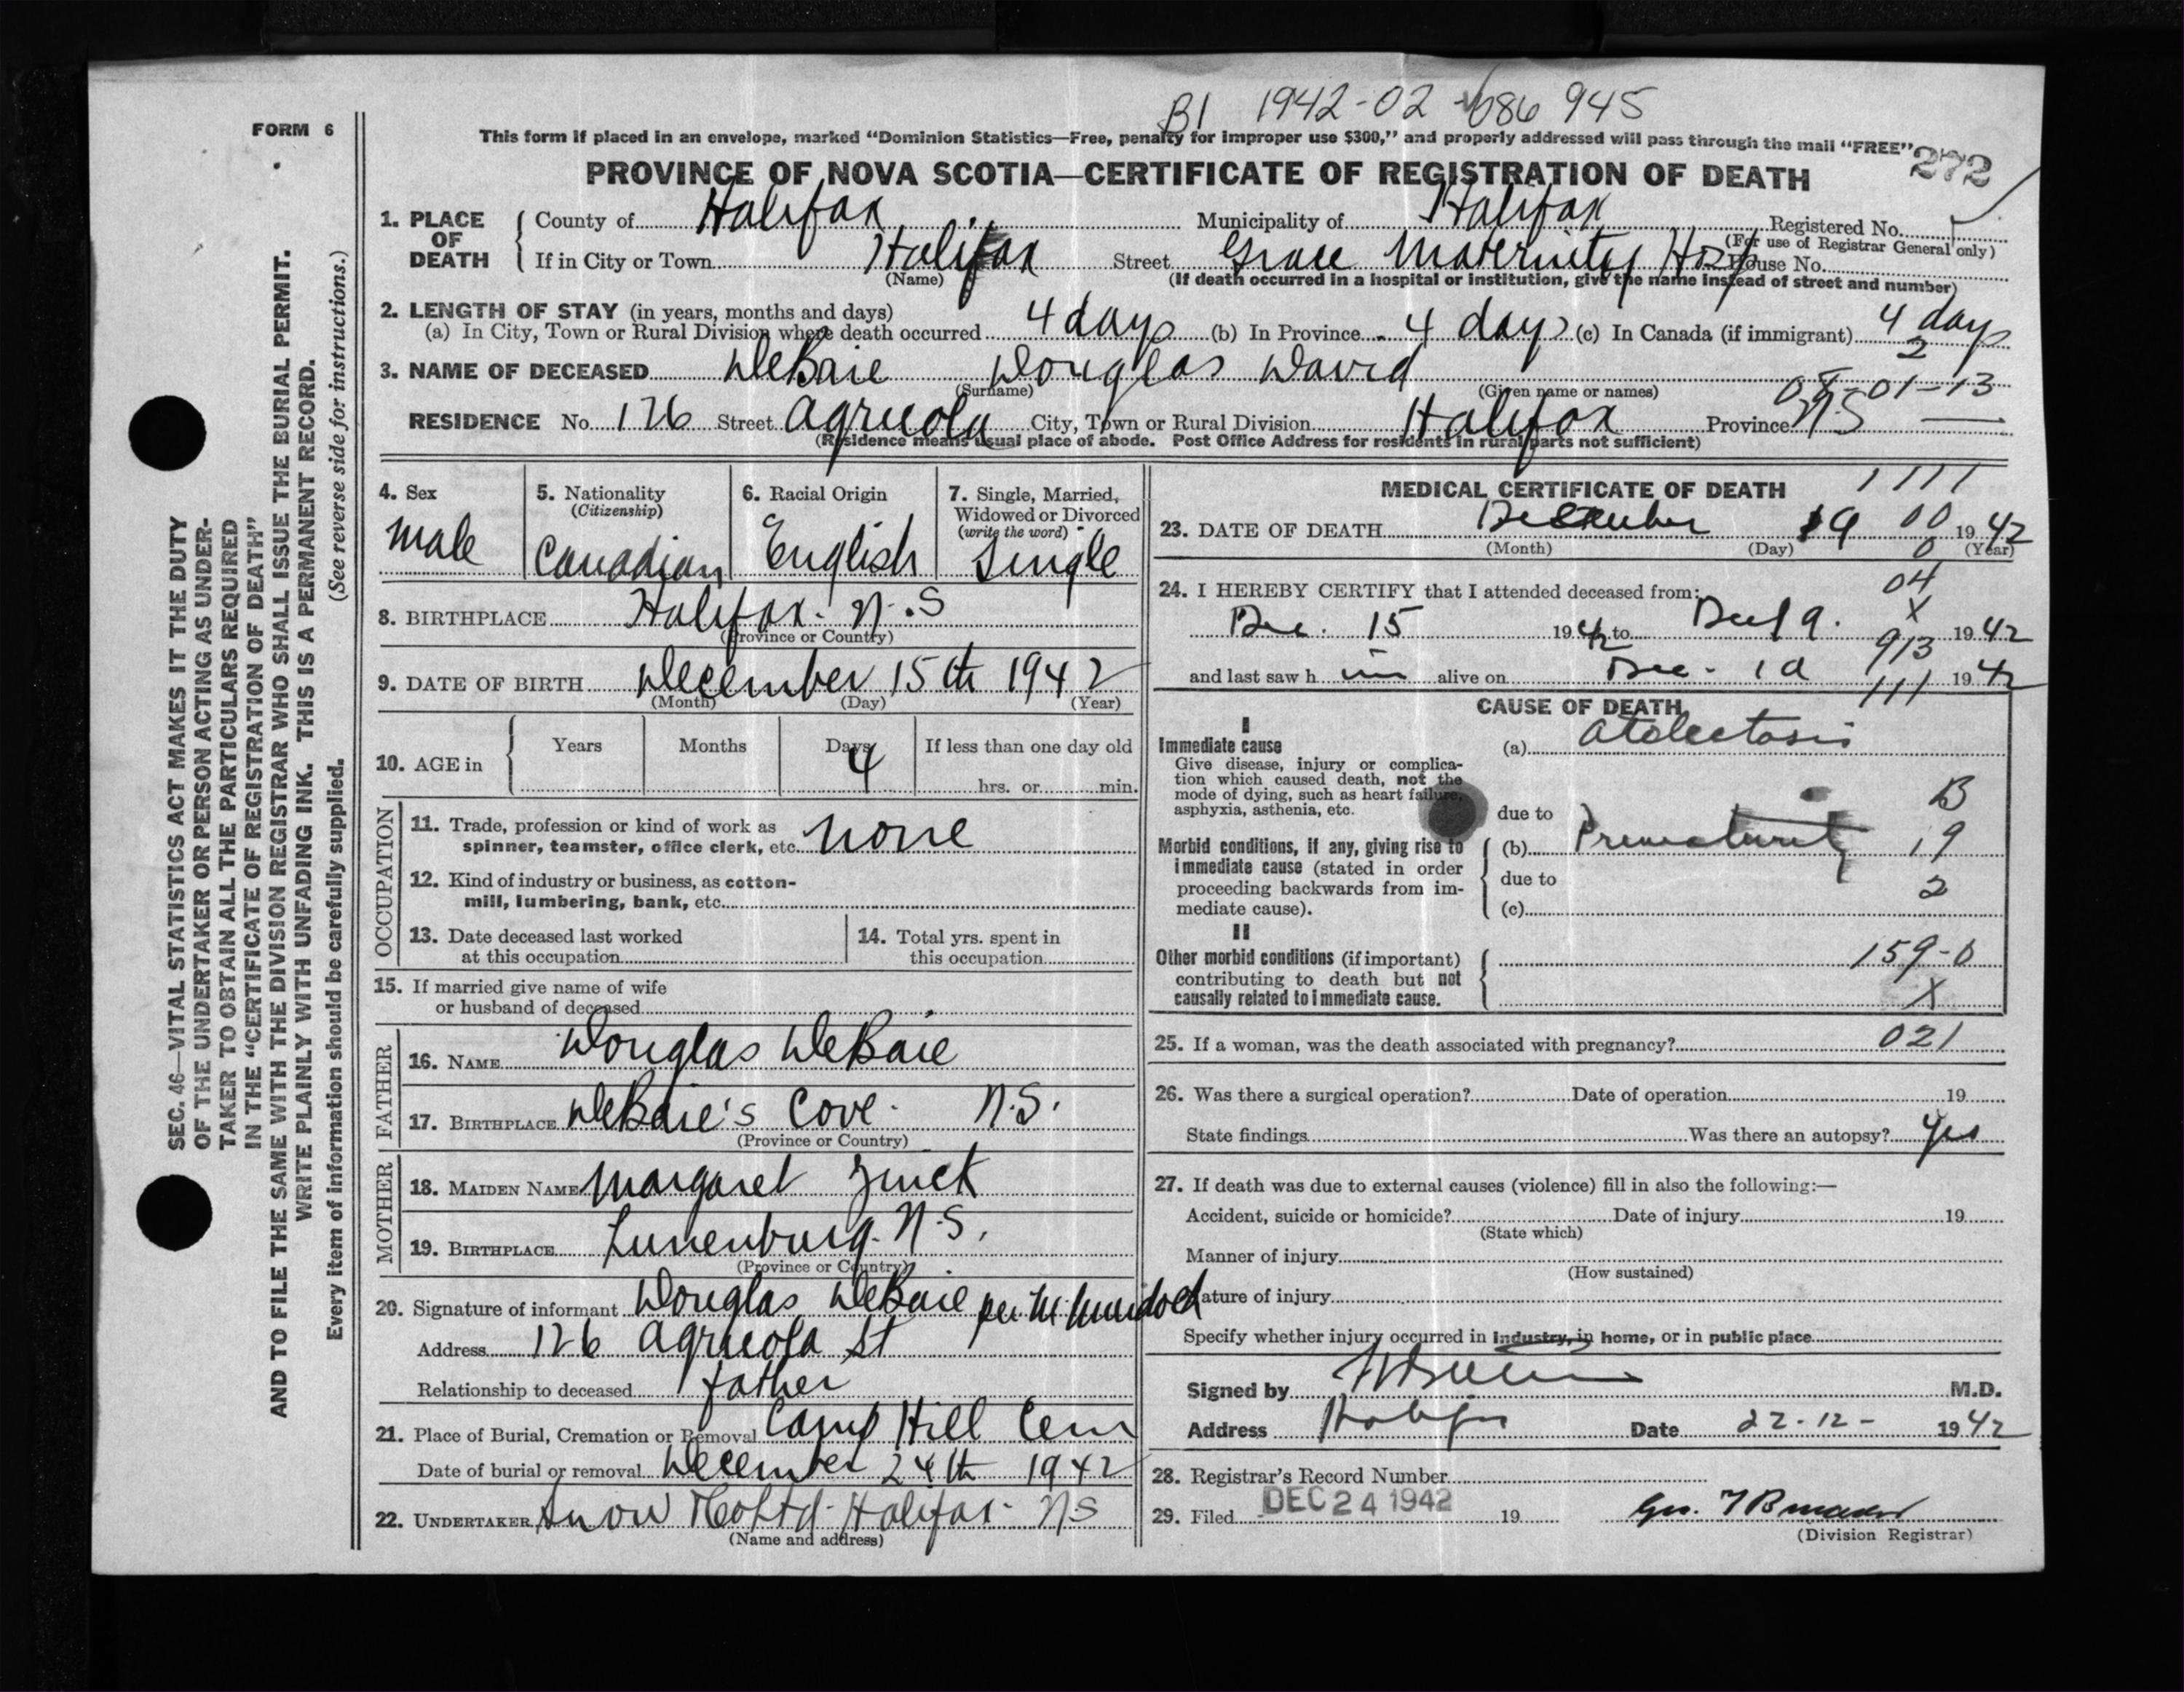 B1 1942-02-086945
FORM 6
This form if placed in an envelope, marked “Dominion Statistics—Free, penalty for improper use $300,” and properly addressed will pass through the mail “FREE”
272
PROVINCE OF NOVA SCOTIA—CERTIFICATE OF REGISTRATION OF DEATH
1. PLACE OF DEATH
County of Halifax Municipality of Halifax Registered No.
(For use of Registrar General only)
If in City or Town Halifax Street Grace Maternity Hosp House No.
(Name) (If death occurred in a hospital or institution, give the name instead of street and number)
2. LENGTH OF STAY (in years, months and days)
(a) In City, Town or Rural Division where death occurred 4 days (b) In Province 4 days (c) In Canada (if immigrant) 4 days
2
3. NAME OF DECEASED DeBaie Douglas David
(Surname) (Given name or names)
01-13
RESIDENCE No. 126 Street Agricola City, Town or Rural Division Halifax Province N S
(Residence means usual place of abode. Post Office Address for residents in rural parts not sufficient)
4. Sex
male
5. Nationality
(Citizenship)
Canadian
6. Racial Origin
English
7. Single, Married,
Widowed or Divorced
(write the word)
Single
8. BIRTHPLACE Halifax. N.S
(Province or Country)
9. DATE OF BIRTH December 15th 1942
(Month) (Day) (Year)
10. AGE in
Years Months Days If less than one day old
4
hrs. or min.
OCCUPATION
11. Trade, profession or kind of work as
spinner, teamster, office clerk, etc. none
12. Kind of industry or business, as cotton-
mill, lumbering, bank, etc.
13. Date deceased last worked
at this occupation
14. Total yrs. spent in
this occupation
15. If married give name of wife
or husband of deceased
FATHER
16. NAME Douglas DeBaie
17. BIRTHPLACE DeBaie's Cove. N.S.
(Province or Country)
MOTHER
18. MAIDEN NAME Margaret Zinck
19. BIRTHPLACE Lunenburg. N.S.
(Province or Country)
20. Signature of informant Douglas DeBaie per
Address 126 Agricola St
Relationship to deceased father
21. Place of Burial, Cremation or Removal Camp Hill Cem
Date of burial or removal December 24th 1942
22. UNDERTAKER Snow & Co Ltd. Halifax. N S
(Name and address)
MEDICAL CERTIFICATE OF DEATH
1111
23. DATE OF DEATH December 19 00 1942
(Month) (Day) 0 (Year)
24. I HEREBY CERTIFY that I attended deceased from:
04
X
Dec. 15 1942 to Dec 19. 1942
913
and last saw h im alive on Dec. 19 1942
111
CAUSE OF DEATH
I
Immediate cause
Give disease, injury or complica-
tion which caused death, not the
mode of dying, such as heart failure,
asphyxia, asthenia, etc.
(a) Atelectasis
B
due to
Morbid conditions, if any, giving rise to
immediate cause (stated in order
proceeding backwards from im-
mediate cause).
(b) Prematurity
19
due to
2
(c)
II
Other morbid conditions (if important)
contributing to death but not
causally related to immediate cause.
159-0
X
25. If a woman, was the death associated with pregnancy? 021
26. Was there a surgical operation? Date of operation 19
State findings Was there an autopsy? Yes
27. If death was due to external causes (violence) fill in also the following:—
Accident, suicide or homicide? Date of injury 19
(State which)
Manner of injury
(How sustained)
Nature of injury
Specify whether injury occurred in industry, in home, or in public place
Signed by M.D.
Address Halifax Date 22-12- 1942
28. Registrar's Record Number
29. Filed DEC 24 1942 19
(Division Registrar)
SEC. 46—VITAL STATISTICS ACT MAKES IT THE DUTY
OF THE UNDERTAKER OR PERSON ACTING AS UNDER-
TAKER TO OBTAIN ALL THE PARTICULARS REQUIRED
IN THE “CERTIFICATE OF REGISTRATION OF DEATH”
AND TO FILE THE SAME WITH THE DIVISION REGISTRAR WHO SHALL ISSUE THE BURIAL PERMIT.
WRITE PLAINLY WITH UNFADING INK. THIS IS A PERMANENT RECORD.
Every item of information should be carefully supplied. (See reverse side for instructions.)